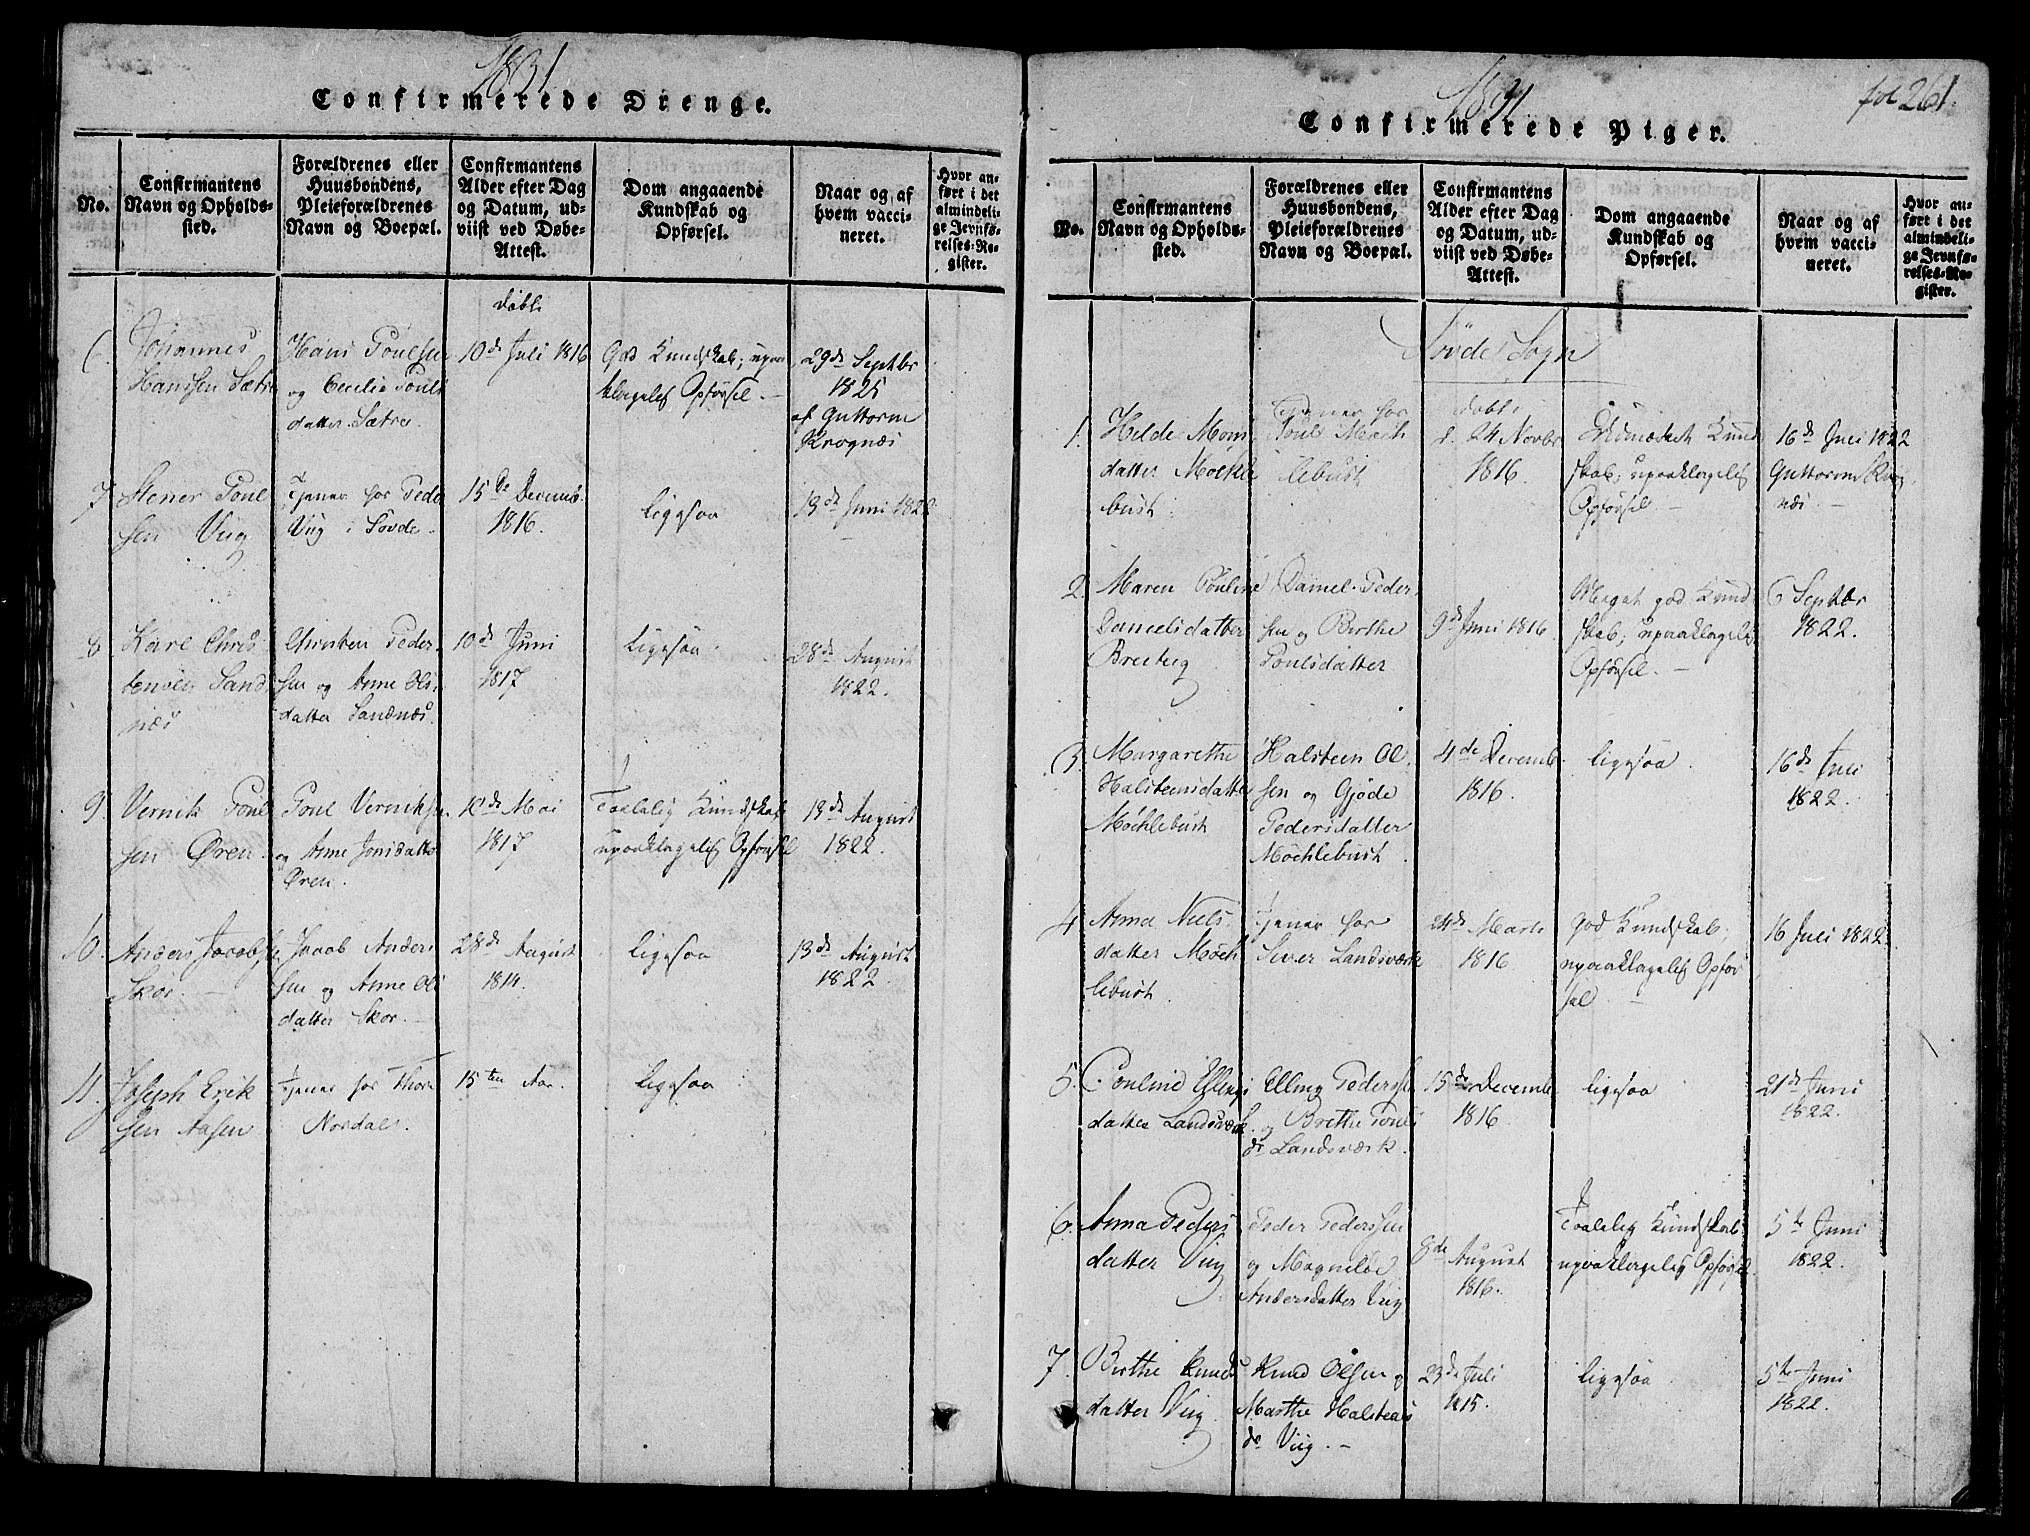 1831
Confirmerede Drenge.
No.
Confirmantens
Navn og Opholds-
sted.
Forældrenes eller
Huusbondens,
Pleieforældrenes
Navn og Boepæl.
Confirmantens
Alder efter Dag
og Datum, ud-
viist ved Døbe-
Attest.
Dom angaaende
Kundskab og
Opførsel.
Naar og af
hvem vacci-
neret.
Hvor an-
ført i det
almindeli-
ge Jevnfø-
relses-Re-
gister.
døbt
6.
Johannes
Hanssen Sætre
Hans Poulsen
og Cecilie Pouls
datter Sætre.
10de Juli 1816
God Kundskab; upaa
klagelig Opførsel. -
29de Septbr
1825
af Guttorm
Krognæs
7.
Stener Poul
sen Viig
Tjener for Peder
Viig i Søvde.
15de Decemb.
1816.
ligesaa
13de Juni 1822
8
Kare Chris
tensen Sand
næs
Christen Peder
sen og Anne Ols
datter Sandnæs.
10de Juni
1817
ligesaa
28de August
1822.
9.
Vernik Poul
sen Øren.
Poul Verniksen
og Anne Jonsdatter
Øren.
10de Mai
1817
Taalelig Kundskab
upaaklagelig Opførsel
13de August
1822.
10.
Anders Jacobsen
Skor. -
Jacob Anders
sen og Anne Ols
datter Skor. -
28de August
1814.
ligesaa
13de August
1822.
11.
Joseph Erik
sen Aasen
Tjener for Thore
Nordal.
15ten Aar.
ligesaa
1831.
fol 261.
Confirmerede Piger.
No.
Confirmantens
Navn og Opholds-
sted.
Forældrenes eller
Huusbondens,
Pleieforældrenes
Navn og Boepæl.
Confirmantens
Alder efter Dag
og Datum, ud-
viist ved Døbe-
Attest.
Dom angaaende
Kundskab og
Opførsel.
Naar og af
hvem vacci-
neret.
Hvor an-
ført i det
almindeli-
ge Jevnfø-
relses-Re-
gister.
Søvde Sogn
1.
Helde Mons
datter Møchle
bust.
Tjener for
Poul Møch
lebust
døbt
d. 24 Novbr
1816.
Kund
skab; upaaklagelig
Opførsel. -
16de Juli 1822
Guttorm Krog
næs -
2.
Maren Pouline
Danielsdatter
Breiteig
Daniel Peder
sen og Birthe
Poulsdatter
9de Juni 1816.
Meget god Kund
skab; upaaklagelig
Opførsel. -
6 Septbr
1822.
3.
Margarethe
Halsteensdatter
Møchlebust
Halsteen Ol
sen og Gjøde
Pedersdatter
Møchlebust.
4de Decemb.
1816.
ligesaa.
16de Juli
1822.
4
Anna Niels
datter Møch
lebust.
Tjener for
Siver Landsværk
24de Marts
1816
God Kundskab;
upaaklagelig Opfør
sel. -
16 Juli 1822.
5.
Pouline Ellings
datter Landsværk.
Elling Pedersen
og Brethe Pouls
dr Landsværk.
15de Decemb.
1816.
ligesaa
21de Juni
1822.
6.
Anna Peders
datter Viig
Peder Pederssen
og Magnilde
Andersdatter Viig
8de August
1816.
Taalelig Kundskab
upaaklagelig Opførsel.
5te Juni
1822.
7.
Birthe Knuds
datter Viig
Knud Olsen og
Marthe Halsteens
dr Viig. -
23de Juli
1815.
ligesaa.
5te Juni
1822.